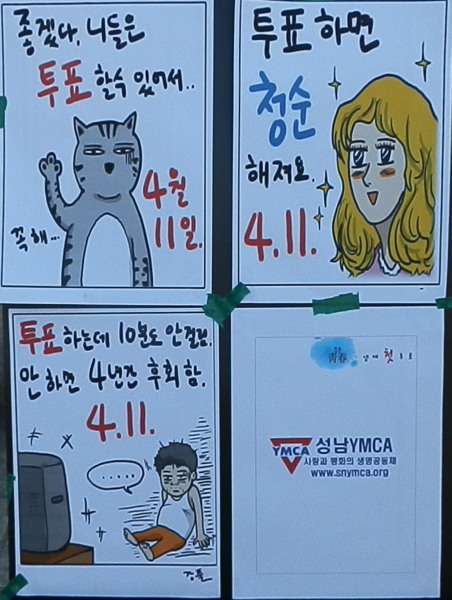 좋겠다, 니들은
투표 할수 있어서..
4월
11일.
꼭해...
투표 하면
청순
해져요.
4.11.
투표하는데 10분도 안걸림.
안하면 4년간 후회함.
4.11.
......
강풀
靑春 생애 첫 투표
YMCA 성남YMCA
사랑과 평화의 생명공동체
www.snymca.org